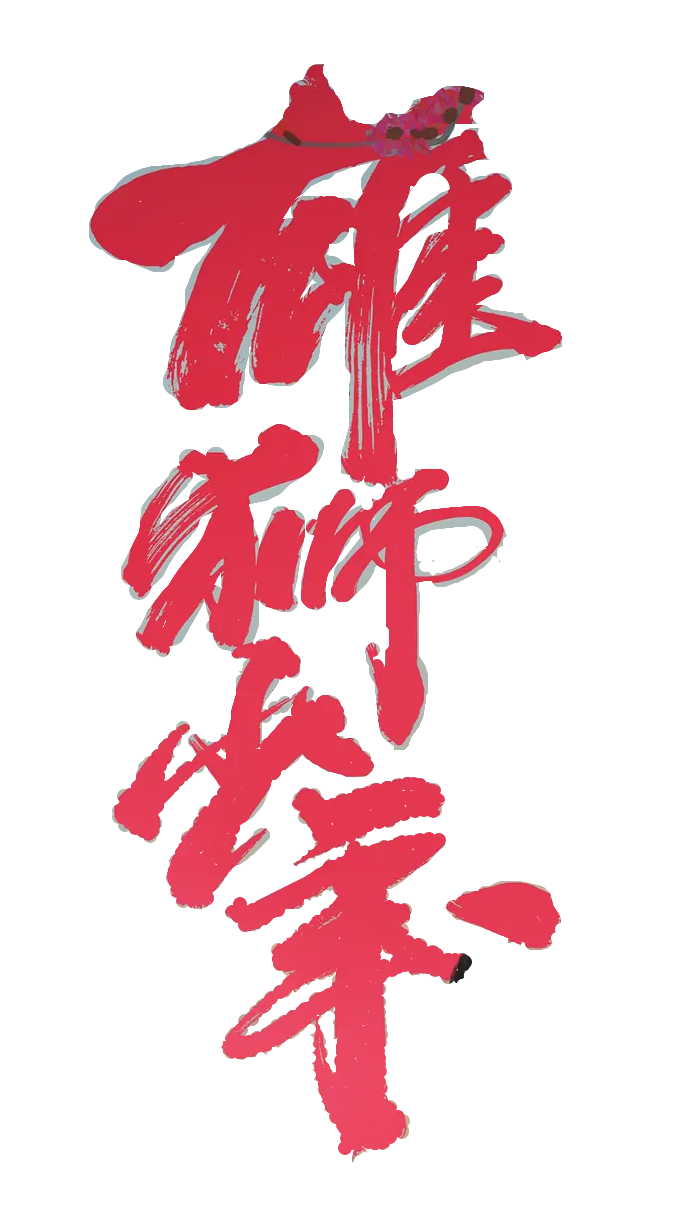 雄狮少年